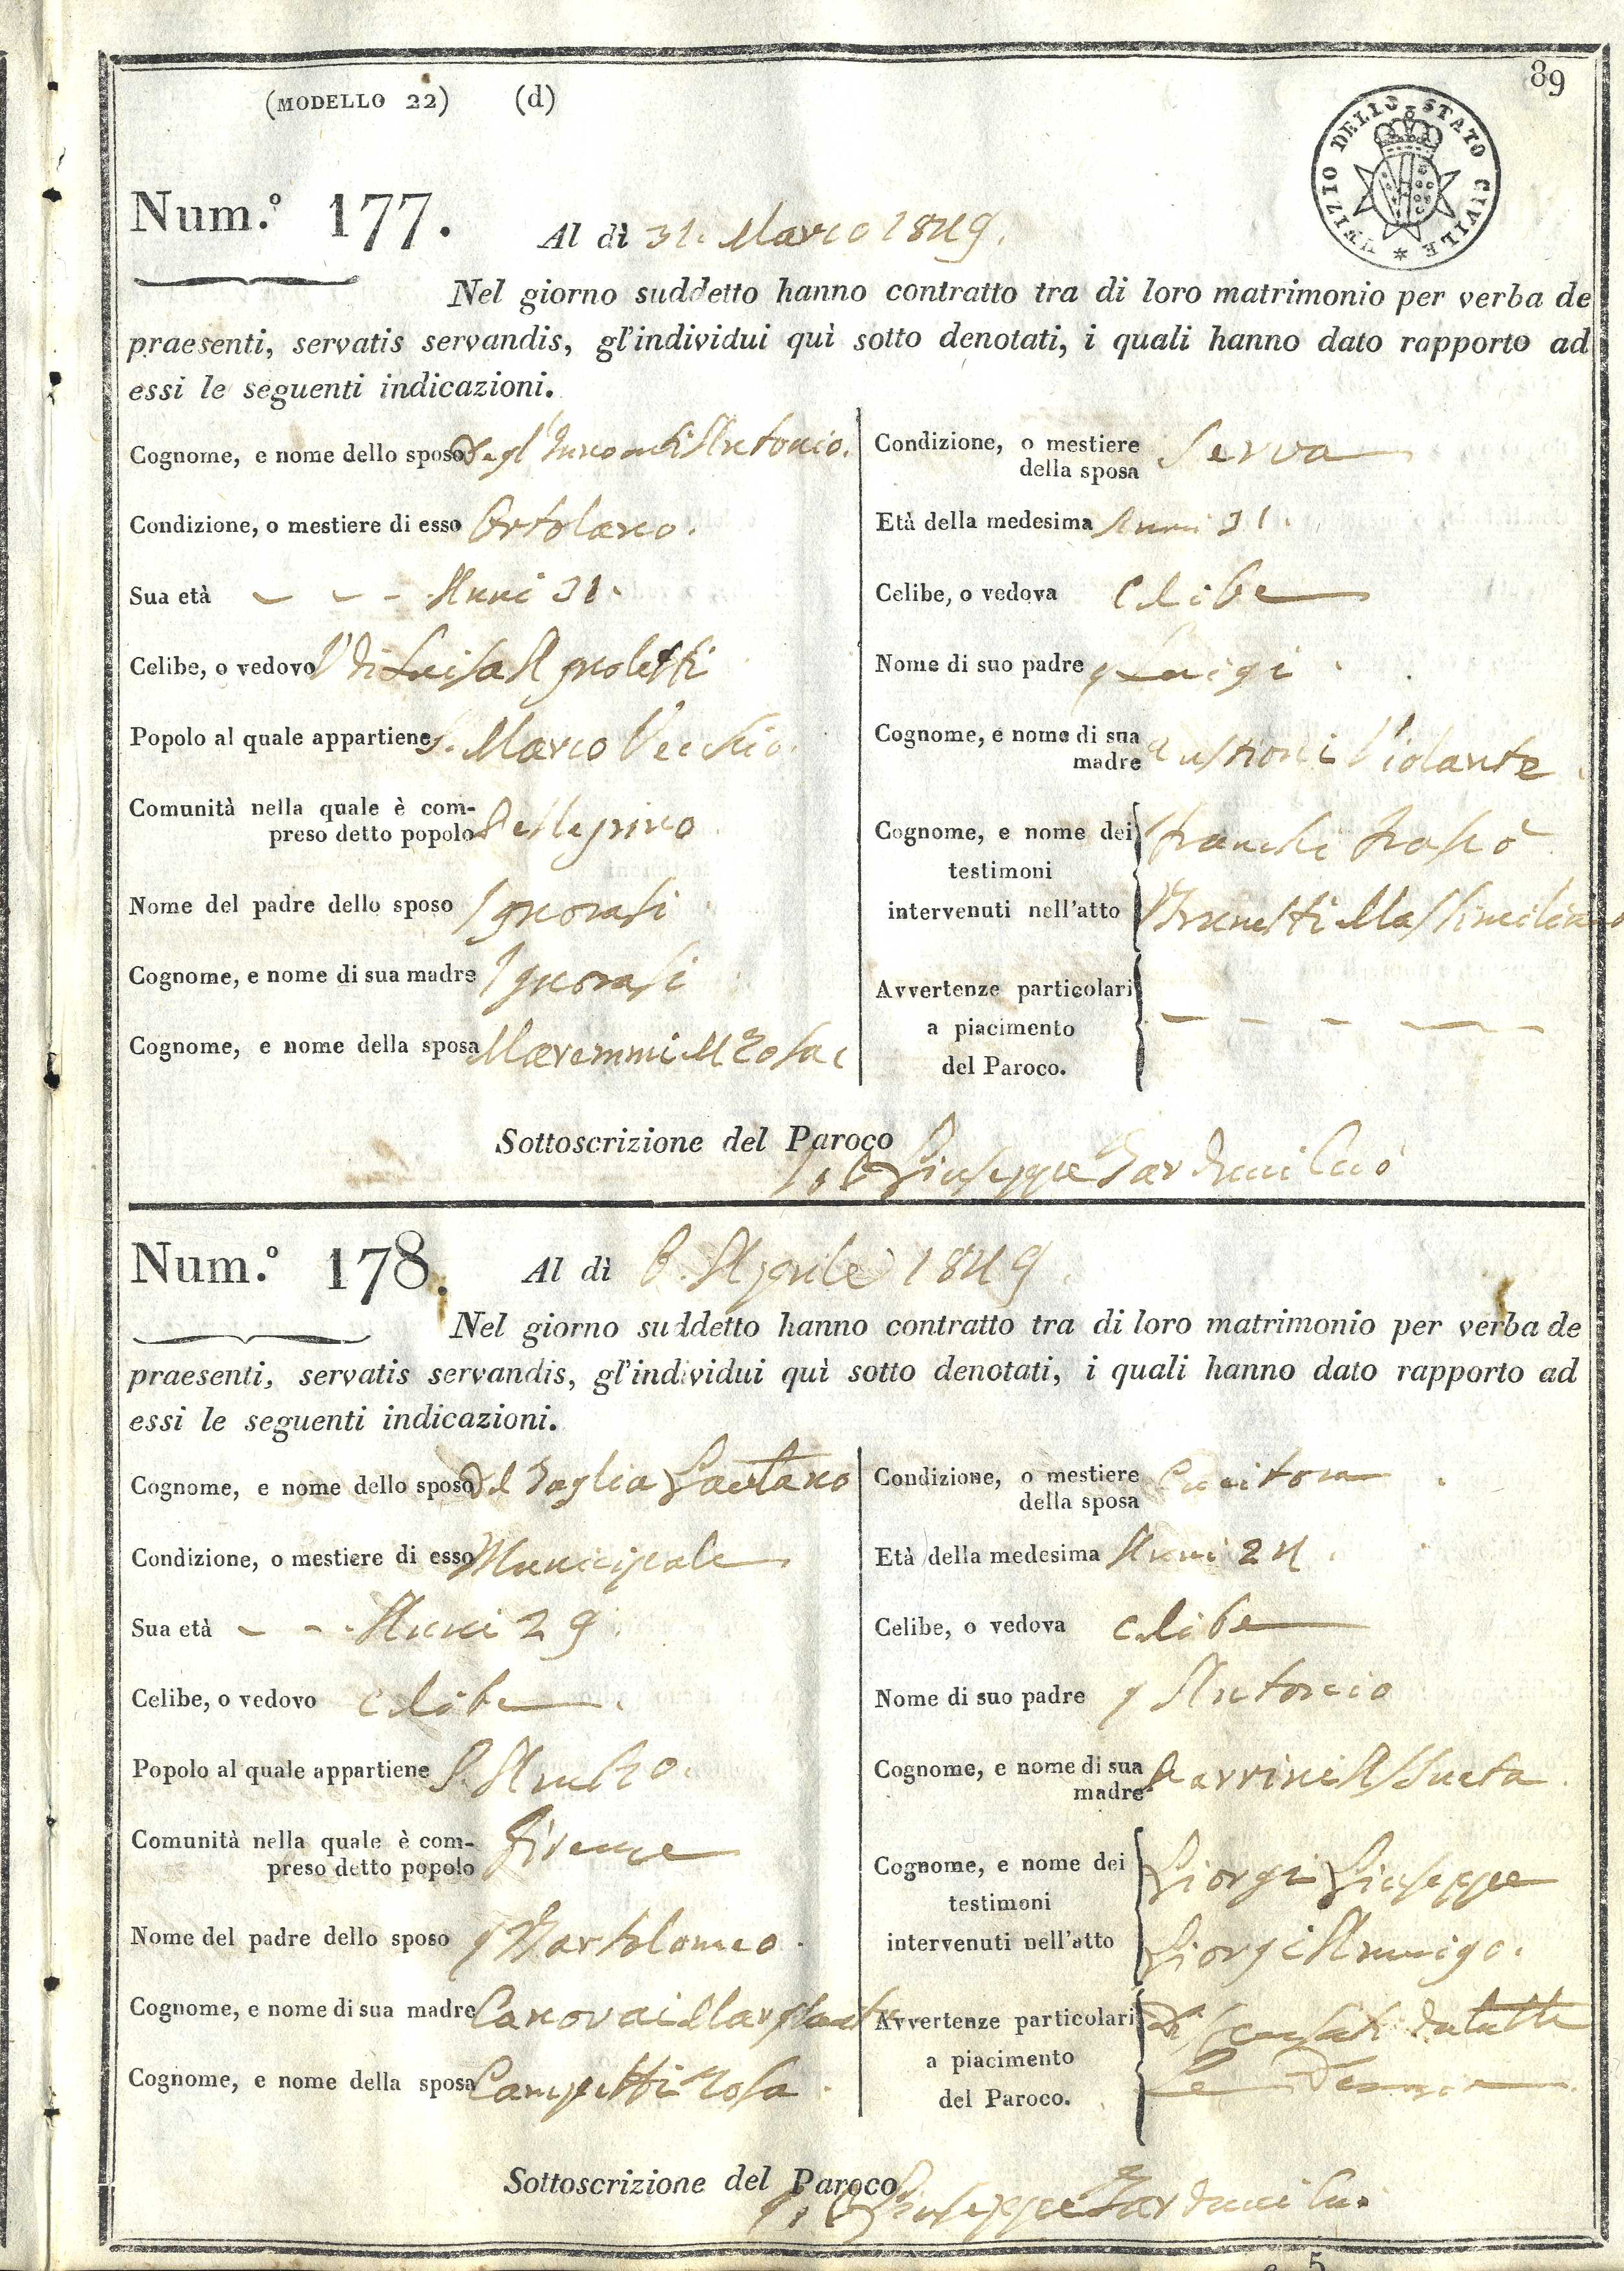 89
(MODELLO 22) (d)
UFIZIO DELLO STATO CIVILE
Num.º 177. Al dì 31. Marzo 1849.
Nel giorno suddetto hanno contratto tra di loro matrimonio per verba de
praesenti, servatis servandis, gl'individui quì sotto denotati, i quali hanno dato rapporto ad
essi le seguenti indicazioni.
Cognome, e nome dello sposo Degl'Innocenti Antonio.
Condizione, o mestiere di esso Ortolano.
Sua età - - - Anni 31.
Celibe, o vedovo V. di Luisa Agnoletti
Popolo al quale appartiene S. Marco Vecchio.
Comunità nella quale è com-
preso detto popolo Pellegrino
Nome del padre dello sposo Ignorasi
Cognome, e nome di sua madre Ignorasi
Cognome, e nome della sposa Maremmi M Rosa
Condizione, o mestiere
della sposa Serva
Età della medesima Anni 31.
Celibe, o vedova Celibe
Nome di suo padre q Luigi
Cognome, e nome di sua
madre Violante
Cognome, e nome dei
testimoni
intervenuti nell'atto
Franchi
Brunetti Massimiliano
Avvertenze particolari
a piacimento
del Paroco.
- - - - -
Sottoscrizione del Paroco
Giuseppe
Num.º 178. Al dì Aprile 1849.
Nel giorno suddetto hanno contratto tra di loro matrimonio per verba de
praesenti, servatis servandis, gl'individui quì sotto denotati, i quali hanno dato rapporto ad
essi le seguenti indicazioni.
Cognome, e nome dello sposo Del Taglia Gaetano
Condizione, o mestiere di esso Municipale
Sua età - - - Anni 29.
Celibe, o vedovo celibe
Popolo al quale appartiene
Comunità nella quale è com-
preso detto popolo Firenze
Nome del padre dello sposo q Bartolomeo
Cognome, e nome di sua madre Canovai
Cognome, e nome della sposa Campetti Rosa
Condizione, o mestiere
della sposa Cucitora
Età della medesima Anni 24.
Celibe, o vedova celibe
Nome di suo padre q Antonio
Cognome, e nome di sua
madre Assunta
Cognome, e nome dei
testimoni
intervenuti nell'atto
Giorgi Giuseppe
Giorgi Arrigo.
Avvertenze particolari
a piacimento
del Paroco.
Dispensati da tutte
Le
Sottoscrizione del Paroco
Giuseppe
5